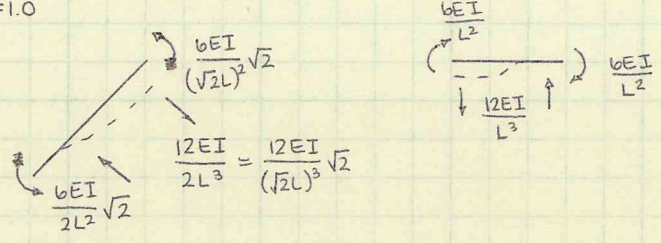 =1.0
6EI/(√2L)² √2
12EI/2L³ = 12EI/(√2L)³ √2
6EI/2L² √2
6EI/L²
6EI/L²
12EI/L³